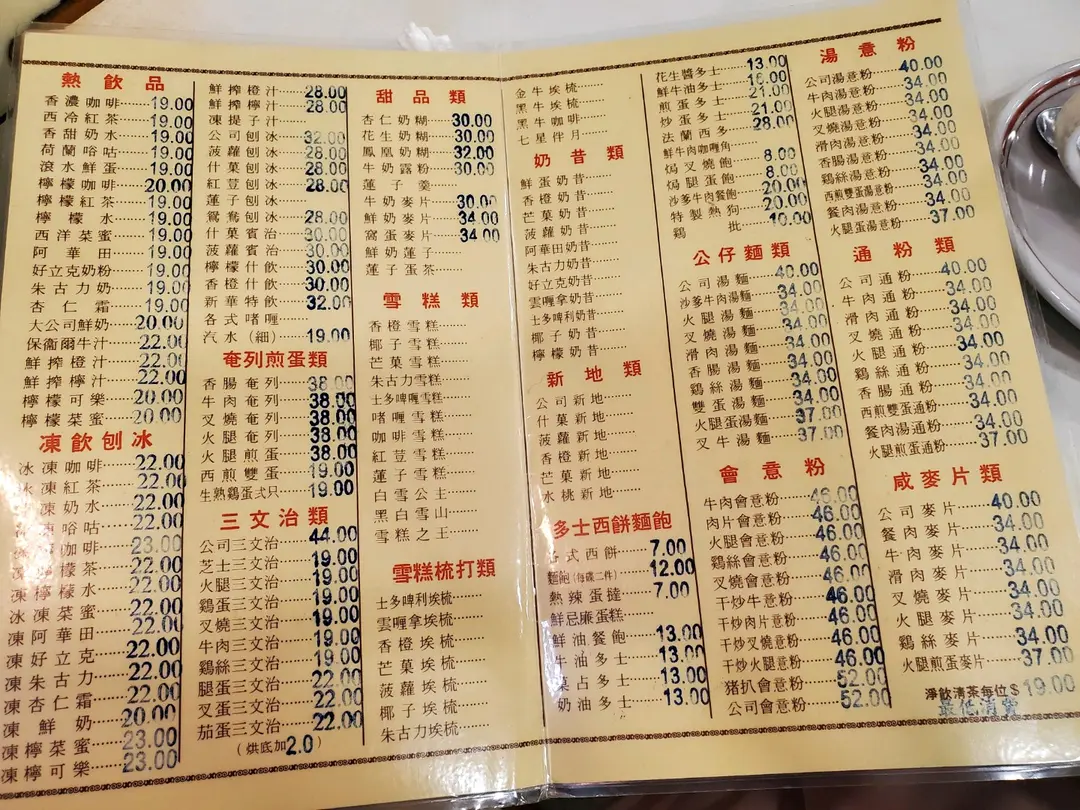 熱飲品
香濃咖啡 19.00
西冷紅茶 19.00
香甜奶水 19.00
荷蘭唂咕 19.00
滾水鮮蛋 19.00
檸檬咖啡 20.00
檸檬紅茶 19.00
檸檬水 19.00
西洋菜蜜 19.00
阿華田 19.00
好立克奶粉 19.00
朱古力奶 19.00
杏仁霜 19.00
大公司鮮奶 20.00
保衞爾牛汁 22.00
鮮搾橙汁 22.00
鮮搾檸汁 22.00
檸檬可樂 20.00
檸檬菜蜜 20.00
凍飲刨冰
冰凍咖啡 22.00
冰凍紅茶 22.00
凍奶水 22.00
唂咕 22.00
咖啡 23.00
檬茶 22.00
凍檸檬水 22.00
冰凍菜蜜 22.00
凍阿華田 22.00
凍好立克 22.00
凍朱古力 22.00
凍杏仁霜 22.00
凍鮮奶 20.00
凍檸菜蜜 23.00
凍檸可樂 23.00
鮮搾橙汁 28.00
鮮搾檸汁 28.00
凍提子汁
公司刨冰 32.00
菠蘿刨冰 28.00
什菓刨冰 28.00
紅荳刨冰 28.00
蓮子刨冰
鴛鴦刨冰 28.00
什菓賓治 30.00
菠蘿賓治 30.00
檸檬什飲 30.00
香橙什飲 30.00
新華特飲 32.00
各式啫喱
汽水(細) 19.00
奄列煎蛋類
香腸奄列 38.00
牛肉奄列 38.00
叉燒奄列 38.00
火腿奄列 38.00
火腿煎蛋 38.00
西煎雙蛋 19.00
生熟鷄蛋弍只 19.00
三文治類
公司三文治 44.00
芝士三文治 19.00
火腿三文治 19.00
鷄蛋三文治 19.00
叉燒三文治 19.00
牛肉三文治 19.00
鷄絲三文治 19.00
腿蛋三文治 22.00
叉蛋三文治 22.00
茄蛋三文治 22.00
(烘底加2.0)
甜品類
杏仁奶糊 30.00
花生奶糊 30.00
鳳凰奶糊 32.00
牛奶露粉 30.00
蓮子羹
牛奶麥片 30.00
鮮奶麥片 34.00
窩蛋麥片 34.00
鮮奶蓮子
蓮子蛋茶
雪糕類
香橙雪糕
椰子雪糕
芒菓雪糕
朱古力雪糕
士多啤喱雪糕
啫喱雪糕
咖啡雪糕
紅荳雪糕
蓮子雪糕
白雪公主
黑白雪山
雪糕之王
雪糕梳打類
士多啤利埃梳
雲喱拿埃梳
香橙埃梳
芒菓埃梳
菠蘿埃梳
椰子埃梳
朱古力埃梳
金牛埃梳
黑牛埃梳
黑牛咖啡
七星伴月
奶昔類
鮮蛋奶昔
香橙奶昔
芒菓奶昔
菠蘿奶昔
阿華田奶昔
朱古力奶昔
好立克奶昔
雲喱拿奶昔
士多啤利奶昔
椰子奶昔
檸檬奶昔
新地類
公司新地
什菓新地
菠蘿新地
香橙新地
芒菓新地
水桃新地
多士西餅麵飽
各式西餅 7.00
麵飽(每碟二件) 12.00
熱辣蛋撻 7.00
鮮忌廉蛋糕
鮮油餐飽 13.00
牛油多士 13.00
菓占多士 13.00
奶油多士 13.00
花生醬多士 13.00
鮮牛油多士 16.00
煎蛋多士 21.00
炒蛋多士 21.00
法蘭西多 28.00
鮮牛肉咖喱角
焗叉燒飽 8.00
焗腿蛋飽 8.00
沙爹牛肉餐飽 20.00
特製熱狗 20.00
鷄批 10.00
公仔麵類
公司湯麵 40.00
沙爹牛肉湯麵 34.00
火腿湯麵 34.00
叉燒湯麵 34.00
滑肉湯麵 34.00
香腸湯麵 34.00
鷄絲湯麵 34.00
雙蛋湯麵 34.00
火腿蛋湯麵 37.00
叉牛湯麵 37.00
會意粉
牛肉會意粉 46.00
肉片會意粉 46.00
火腿會意粉 46.00
鷄絲會意粉 46.00
叉燒會意粉 46.00
干炒牛意粉 46.00
干炒肉片意粉 46.00
干炒叉燒意粉 46.00
干炒火腿意粉 46.00
豬扒會意粉 52.00
公司會意粉 52.00
湯意粉
公司湯意粉 40.00
牛肉湯意粉 34.00
火腿湯意粉 34.00
叉燒湯意粉 34.00
滑肉湯意粉 34.00
香腸湯意粉 34.00
鷄絲湯意粉 34.00
西煎雙蛋湯意粉 34.00
餐肉湯意粉 34.00
火腿蛋湯意粉 37.00
通粉類
公司通粉 40.00
牛肉通粉 34.00
滑肉通粉 34.00
叉燒通粉 34.00
火腿通粉 34.00
鷄絲通粉 34.00
香腸通粉 34.00
西煎雙蛋通粉 34.00
餐肉湯通粉 34.00
火腿煎蛋通粉 37.00
咸麥片類
公司麥片 40.00
餐肉麥片 34.00
牛肉麥片 34.00
滑肉麥片 34.00
叉燒麥片 34.00
火腿麥片 34.00
鷄絲麥片 34.00
火腿煎蛋麥片 37.00
淨飲清茶每位$19.00
最低消費